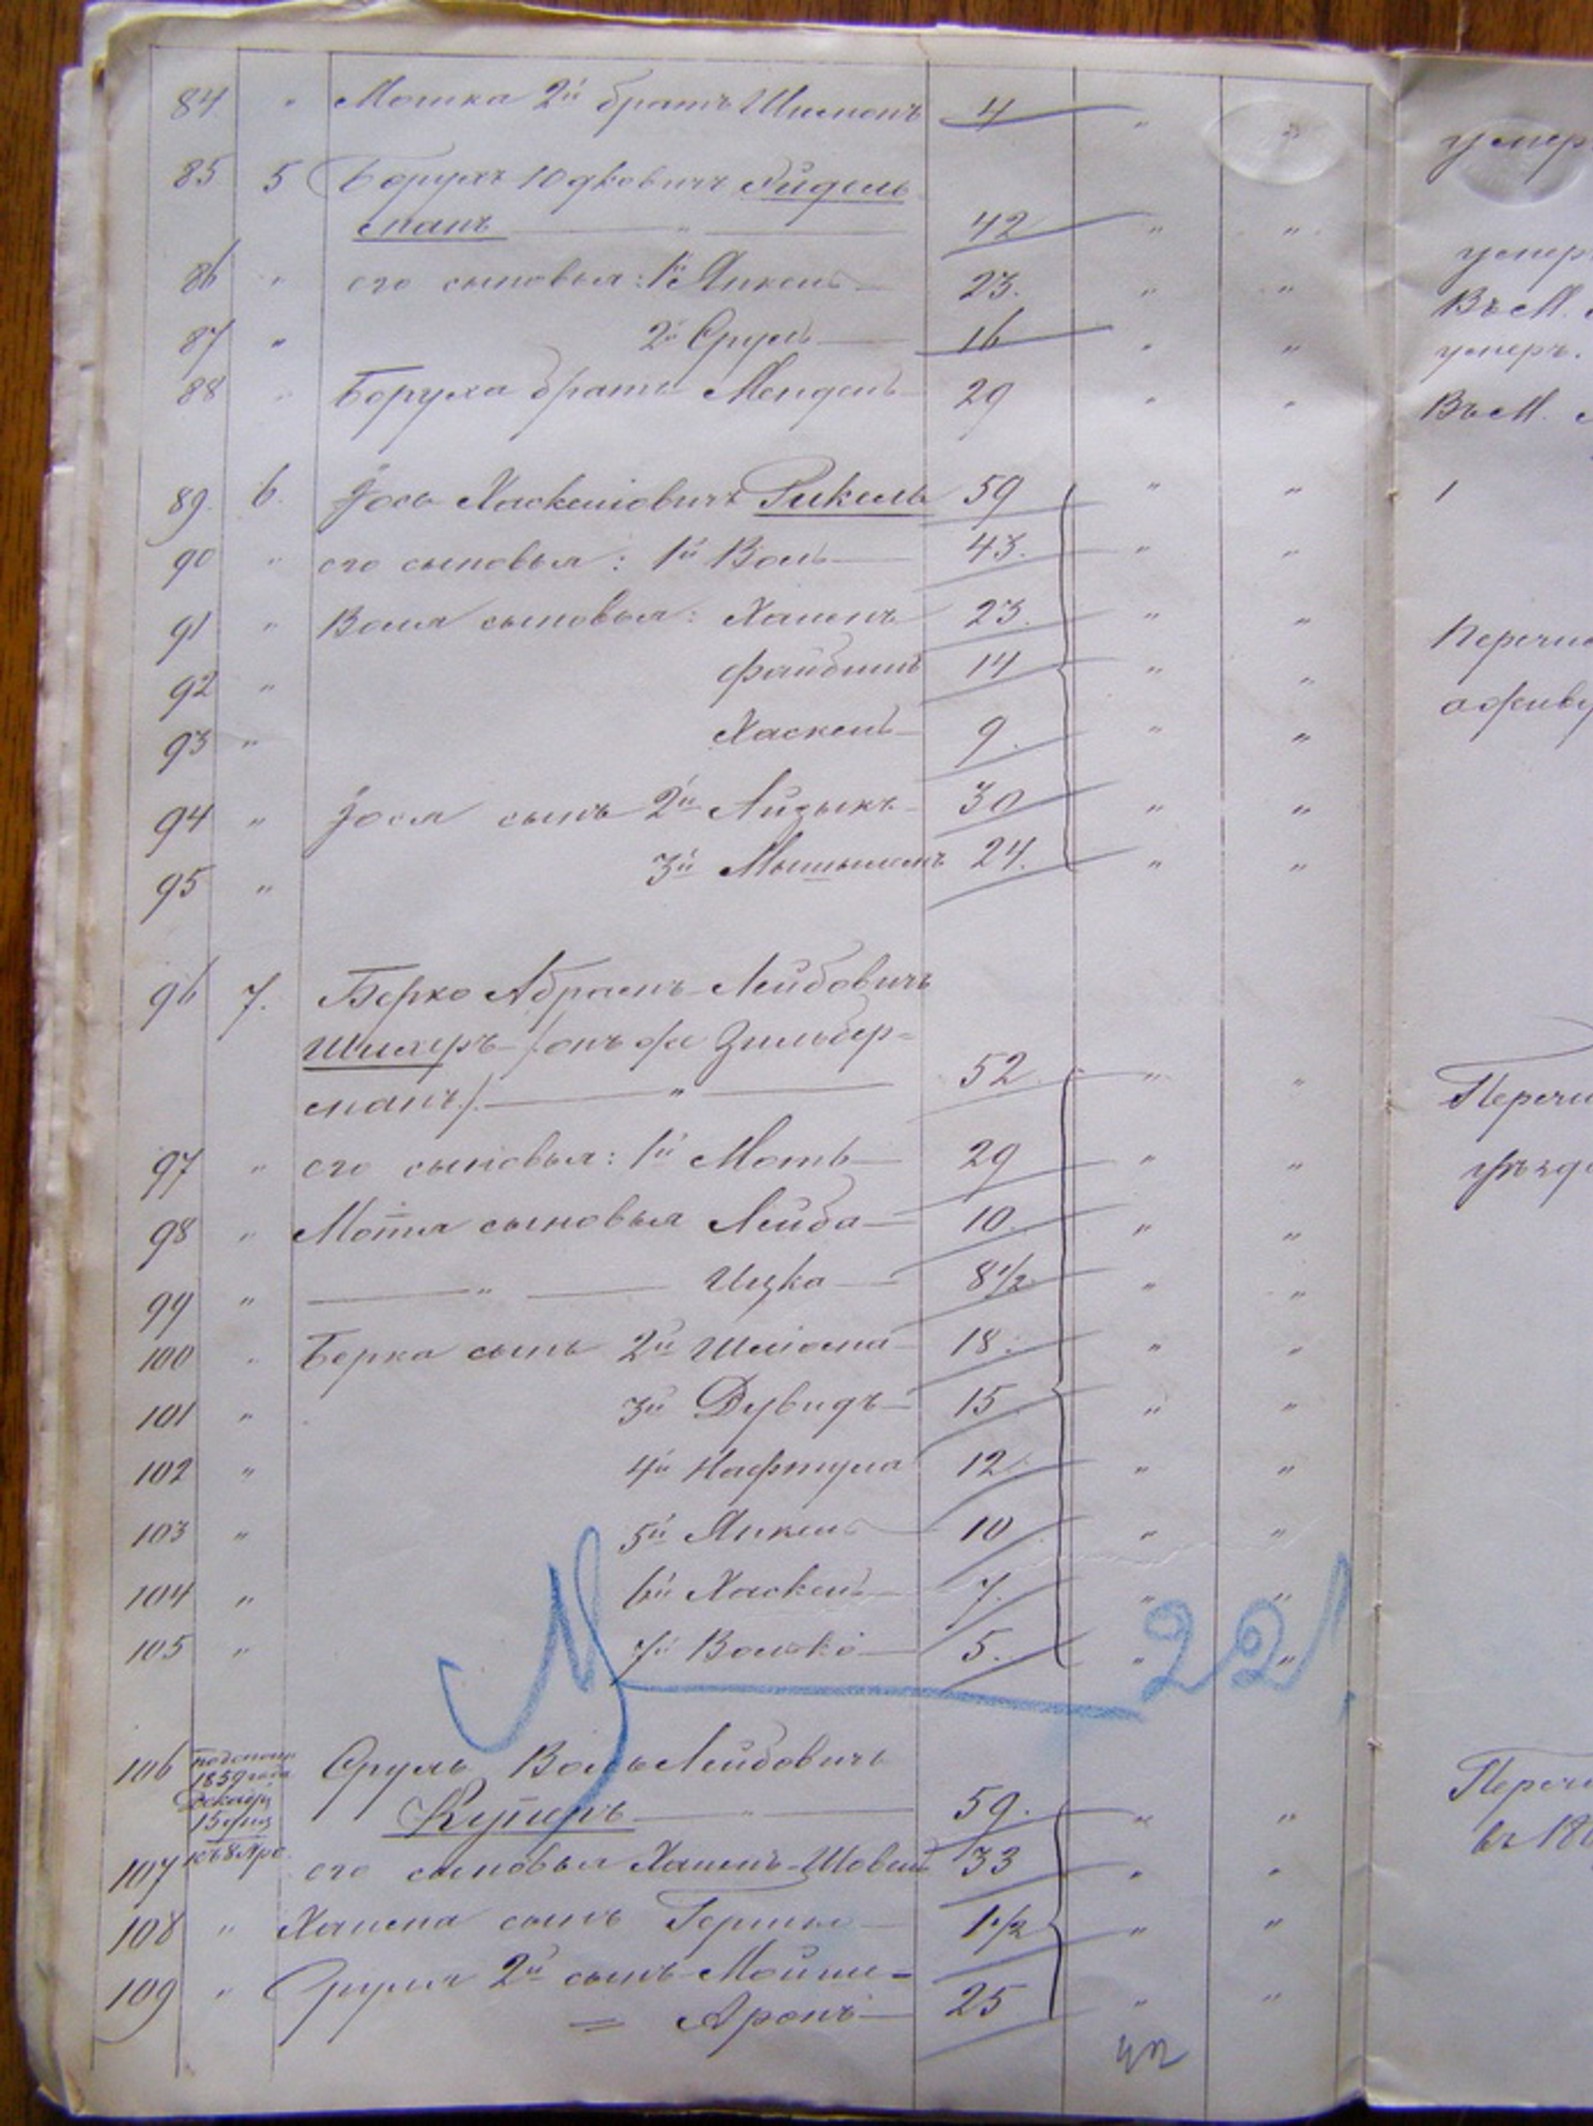 84 " Мошка 2й братъ Шимонъ 4 " "
85 5 Борухъ Юдковичъ Айдель
манъ " 42 " "
86 " его сыновья: 1й Янкель 23. " "
87 " 2й Сруль 16 " "
88 " Боруха братъ Мендель 29 " "
89. 6. Іось Хаскелiовичъ Рикель 59 " "
90 " его сыновья: 1й Воль 43. " "
91 " Воля сыновья: Хаимъ 23. " "
92 " Файбишъ 14 " "
93 " Хаскель 9. " "
94 " Іося сынъ 2й Айзыкъ 30 " "
95 " 3й 24. " "
96 7. Берко Абрамъ-Лейбовичъ
Шихеръ /онъ же Зильбер=
манъ/. " 52. " "
97 " его сыновья: 1й Моть 29 " "
98 " Мотя сыновья Лейба 10. " "
99 " " Ицка 8 1/2 " "
100 " Берка сынъ 2й Шліома 18. " "
101 " 3й Дувидъ 15 " "
102 " 4й Нафтула 12. " "
103 " 5й Янкель 10 " "
104 " 6й Хаскель 7. " "
105 " 7й Волько 5. " "
22
106 1859 года
Декабря
15 дня
Сруль Воль-Лейбовичъ
Куперъ " 59. " "
107 его сыновья Хаимъ-Шовель 33 " "
108 " Хаима сынъ Гершъ 1 1/2 " "
109 " Сруля 2й сынъ Мойше=
= Аронъ 25 " "
умер
умер
Въ М.
умеръ.
Въ М.
1
Перечис
Перечи
Перечи